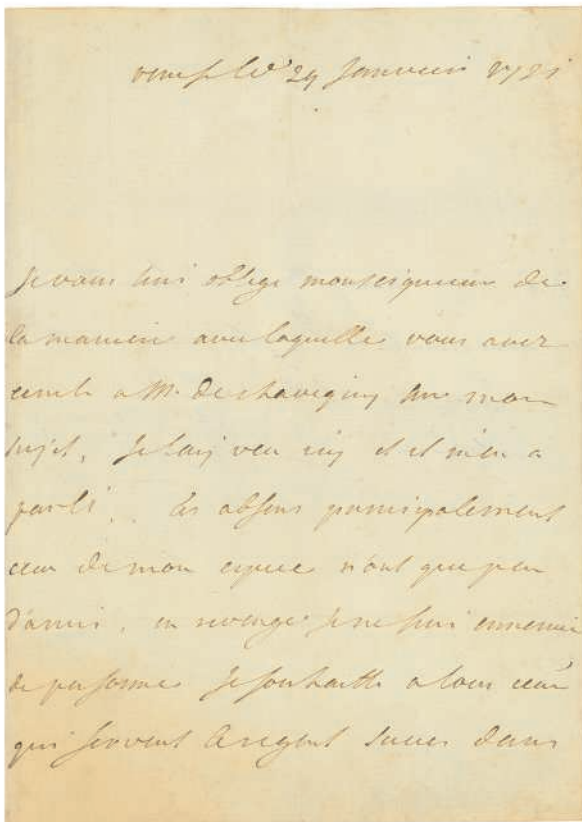 venise le 29 Janvier 1721
Je vous suis oblige monseigneur de
la maniere avec laquelle vous avez
ecrit a Mr. de chavigny sur mon
sujet, Je lay veu icy et il m'en a
parlé. les absens principalement
ceux de mon espece n'ont que peu
d'amis. en revenge Je ne suis ennemie
de personne Je souhaitte a tous ceux
qui servent le regent succes dans